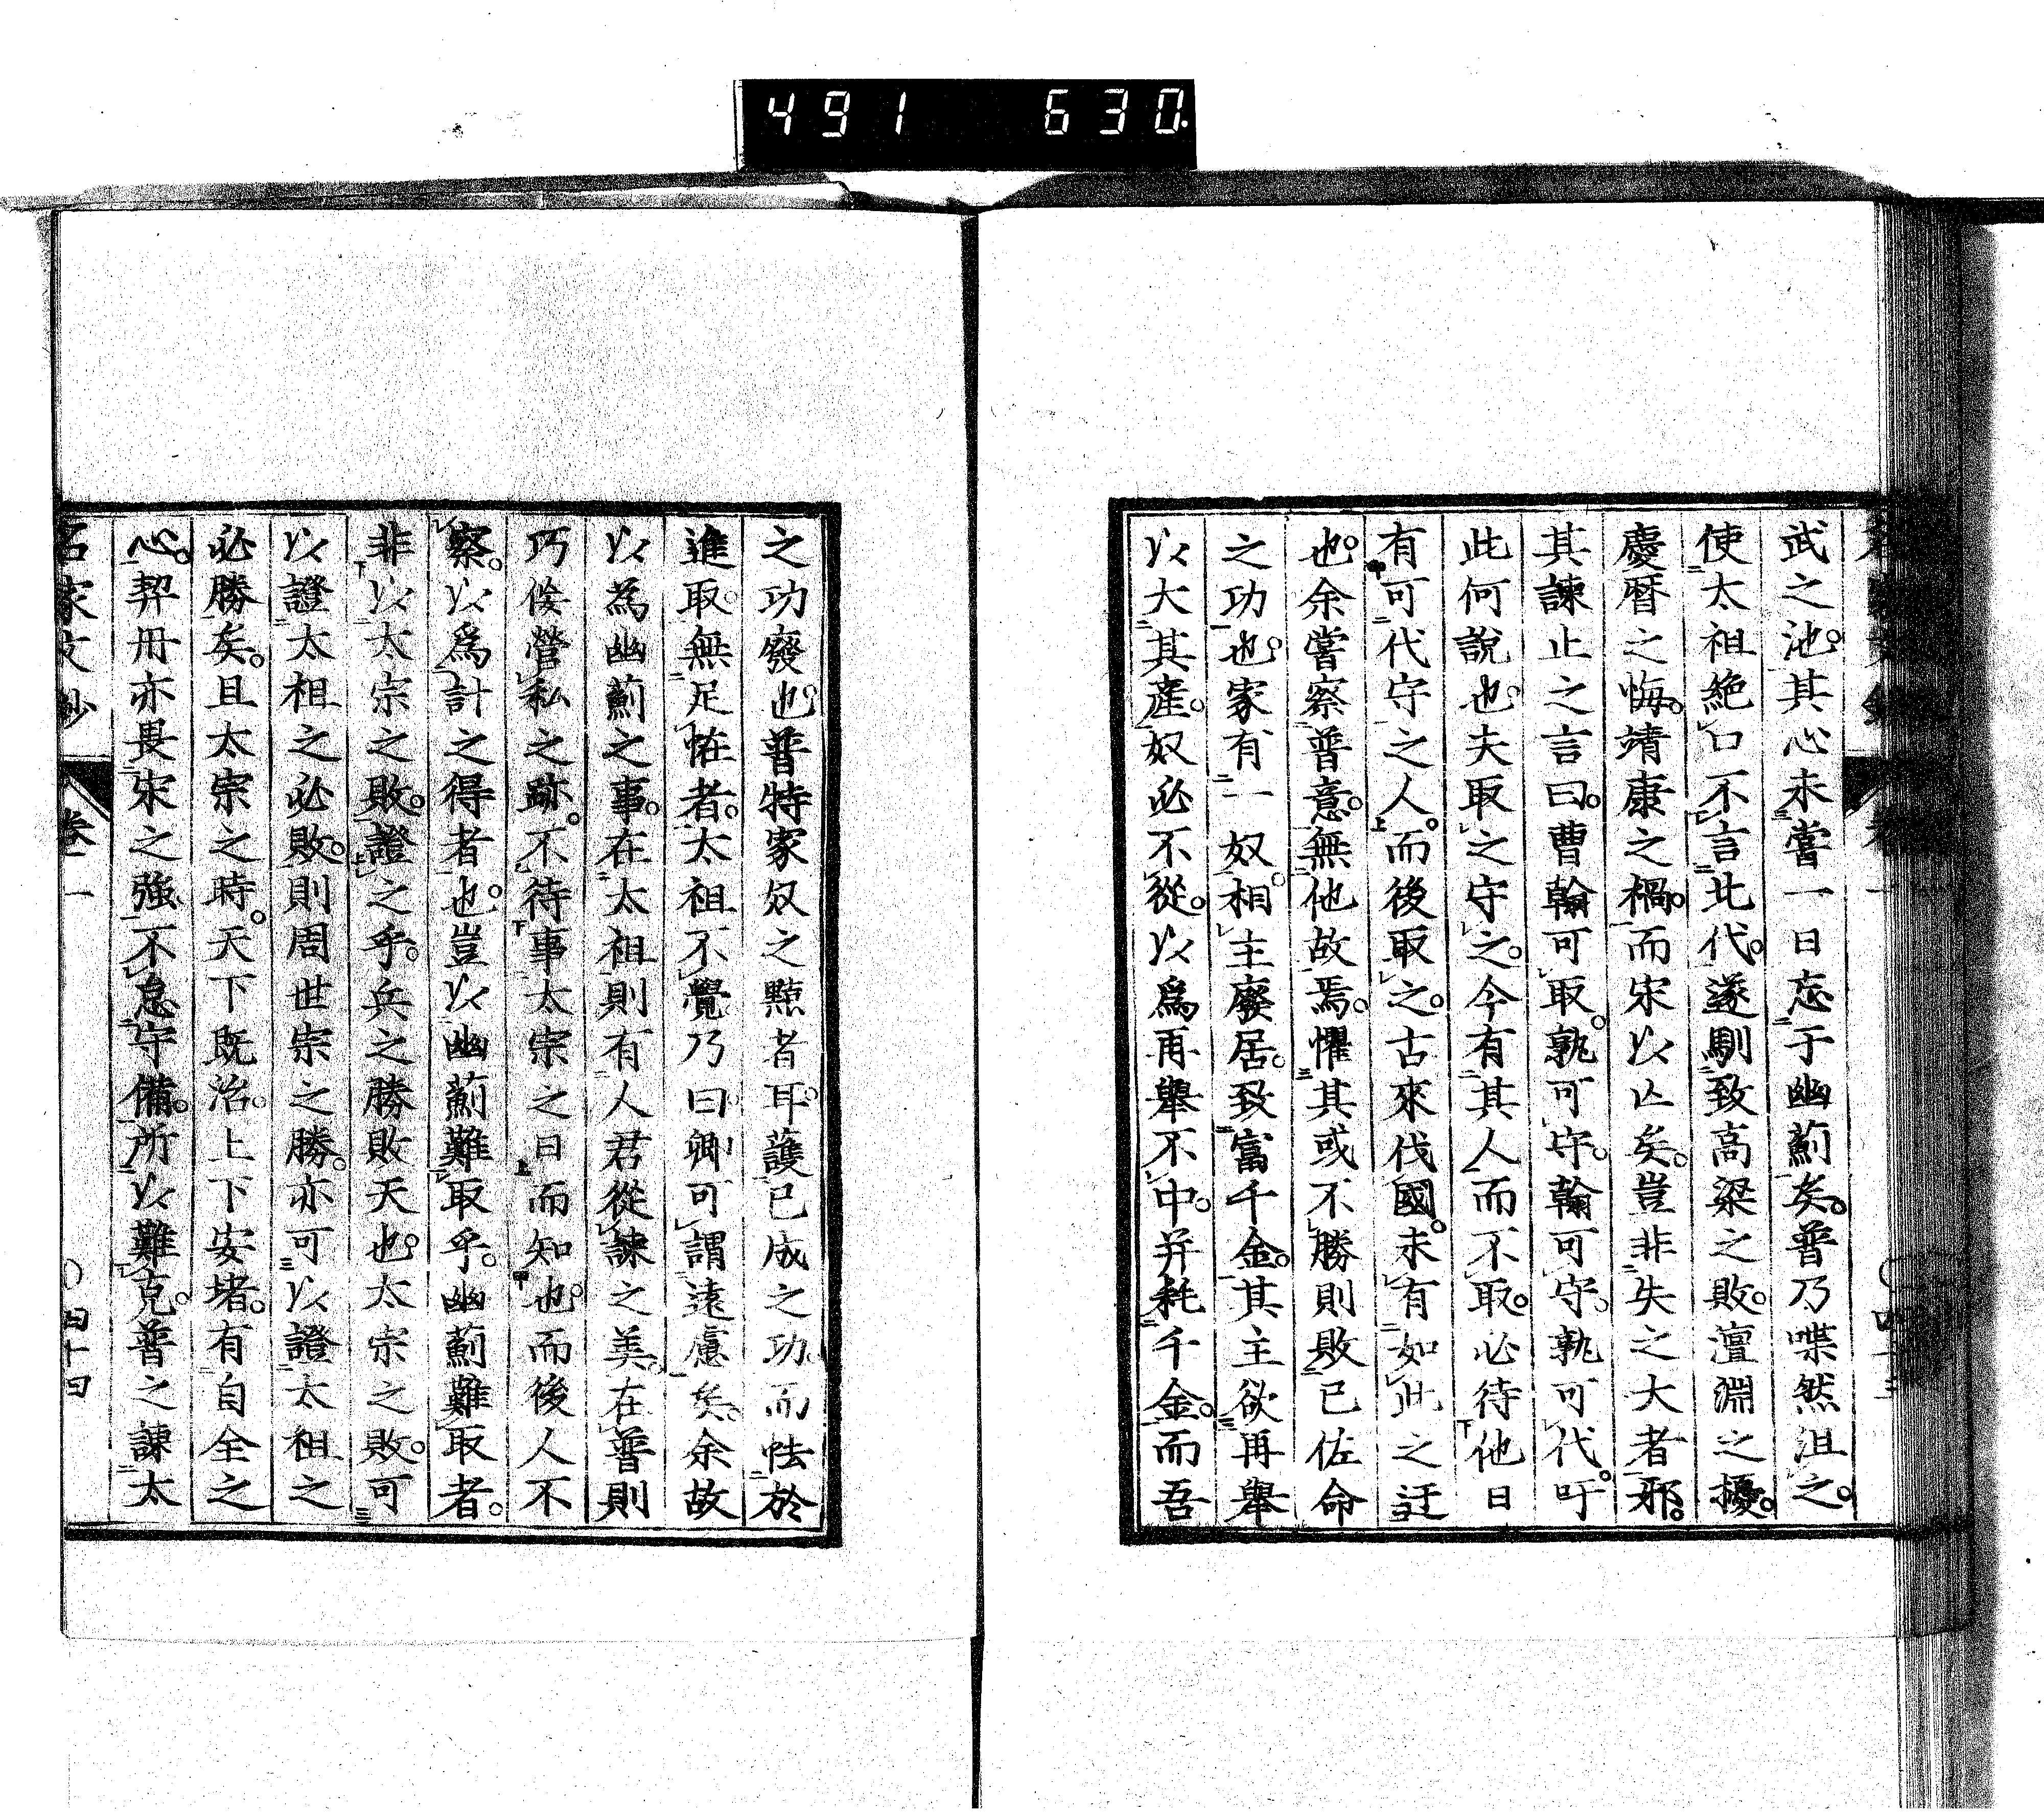 491 630.
武之池其心未嘗一日忘于幽薊矣普乃喋然沮之
使太祖絶口不言北代遂馴致高梁之敗澶淵之擾
慶曆之悔靖康之禍而宋以亾矣豈非失之大者邪
其諫止之言曰曹翰可取孰可守翰可守孰可代吁
此何說也夫取之守之今有其人而不取必待他日
有可代守之人而後取之古來伐國未有如此之迂
也余嘗察普意無他故焉懼其或不勝則敗已佐命
之功也家有一奴相主廢居致富千金其主欲再舉
以大其産奴必不從以爲再舉不中并耗千金而吾
之功廢也普特家奴之黠者耳護已成之功而怯於
進取無足恠者太祖不覺乃曰卿可謂遠慮矣余故
以為幽薊之事在太祖則有人君從諫之美在普則
巧倰營私之跡不待事太宗之日而知也而後人不
察以爲計之得者也豈以幽薊難取乎幽薊難取者
非以太宗之敗證之乎兵之勝敗天也太宗之敗可
以證太相之必敗則周世宗之勝亦可以證太祖之
必勝矣且太宗之時天下既治上下安堵有自全之
心契丹亦畏宋之強不怠守備所以難克普之諫太
名家文鈔 卷二 四十四